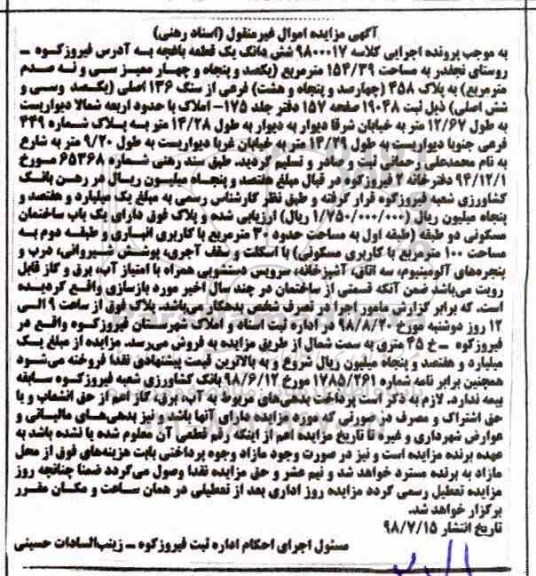 آگهی مزایده اموال غیرمنقول (اسناد رهنی)
به موجب پرونده اجرایی کلاسه ۹۸۰۰۰۱۷ شش دانگ یک قطعه باغچه به آدرس فیروزکوه ـ
روستای نجفدر به مساحت ۱۵۴/۳۹ مترمربع (یکصد و پنجاه و چهار ممیز سی و نه صدم
مترمربع) به پلاک ۴۵۸ (چهارصد و پنجاه و هشت) فرعی از سنگ ۱۳۶ اصلی (یکصد وسی و
شش اصلی) ذیل ثبت ۱۹۰۴۸ صفحه ۱۵۷ دفتر جلد ۱۷۵- املاک با حدود اربعه شمالا دیواریست
به طول ۱۲/۶۷ متر به خیابان شرقا دیوار به دیوار به طول ۱۴/۲۸ متر به پلاک شماره ۴۴۹
فرعی جنوبا دیواریست به طول ۱۴/۲۹ متر به خیابان غربا دیواریست به طول ۹/۲۰ متر به شارع
به نام محمدعلی رحمانی ثبت و صادر و تسلیم گردید. طبق سند رهنی شماره ۶۵۳۶۸ مورخ
۹۴/۱۲/۱ دفترخانه ۲ فیروزکوه در قبال مبلغ هفتصد و پنجاه میلیون ریال در رهن بانک
کشاورزی شعبه فیروزکوه قرار گرفته و طبق نظر کارشناس رسمی به مبلغ یک میلیارد و هفتصد و
پنجاه میلیون ریال (۱/۷۵۰/۰۰۰/۰۰۰ ریال) ارزیابی شده و پلاک فوق دارای یک باب ساختمان
مسکونی دو طبقه (طبقه اول به مساحت حدود ۳۰ مترمربع با کاربری انباری و طبقه دوم به
مساحت ۱۰۰ مترمربع با کاربری مسکونی) با اسکلت و سقف آجری، پوشش شیروانی، درب و
پنجره‌های آلومینیوم، سه اتاق، آشپزخانه، سرویس دستشویی همراه با امتیاز آب، برق و گاز قابل
رویت می‌باشد ضمن آنکه قسمتی از ساختمان در چند سال اخیر مورد بازسازی واقع گردیده
است. که برابر گزارش مامور اجرا در تصرف شخص بدهکار می‌باشد. پلاک فوق از ساعت ۹ الی
۱۲ روز دوشنبه مورخ ۹۸/۸/۲۰ در اداره ثبت اسناد و املاک شهرستان فیروزکوه واقع در
فیروزکوه ـ خ ۴۵ متری به سمت شمال از طریق مزایده به فروش می‌رسد. مزایده از مبلغ یک
میلیارد و هفتصد و پنجاه میلیون ریال شروع و به بالاترین قیمت پیشنهادی نقدا فروخته می‌شود
همچنین برابر نامه شماره ۱۷۸۵/۲۶۱ مورخ ۹۸/۶/۱۲ بانک کشاورزی شعبه فیروزکوه سابقه
بیمه ندارد. لازم به ذکر است پرداخت بدهی‌های مربوط به آب، برق، گاز اعم از حق انشعاب و یا
حق اشتراک و مصرف در صورتی که مورد مزایده دارای آنها باشد و نیز بدهی‌های مالیاتی و
عوارض شهرداری و غیره تا تاریخ مزایده اعم از اینکه رقم قطعی آن معلوم شده یا نشده باشد به
عهده برنده مزایده است و نیز در صورت وجود مازاد وجوه پرداختی بابت هزینه‌های فوق از محل
مازاد به برنده مسترد خواهد شد و نیم عشر و حق مزایده نقدا وصول می‌گردد ضمنا چنانچه روز
مزایده تعطیل رسمی گردد مزایده روز اداری بعد از تعطیلی در همان ساعت و مکان مقرر
برگزار خواهد شد.
تاریخ انتشار ۹۸/۷/۱۵
مسئول اجرای احکام اداره ثبت فیروزکوه ـ زینب‌السادات حسینی